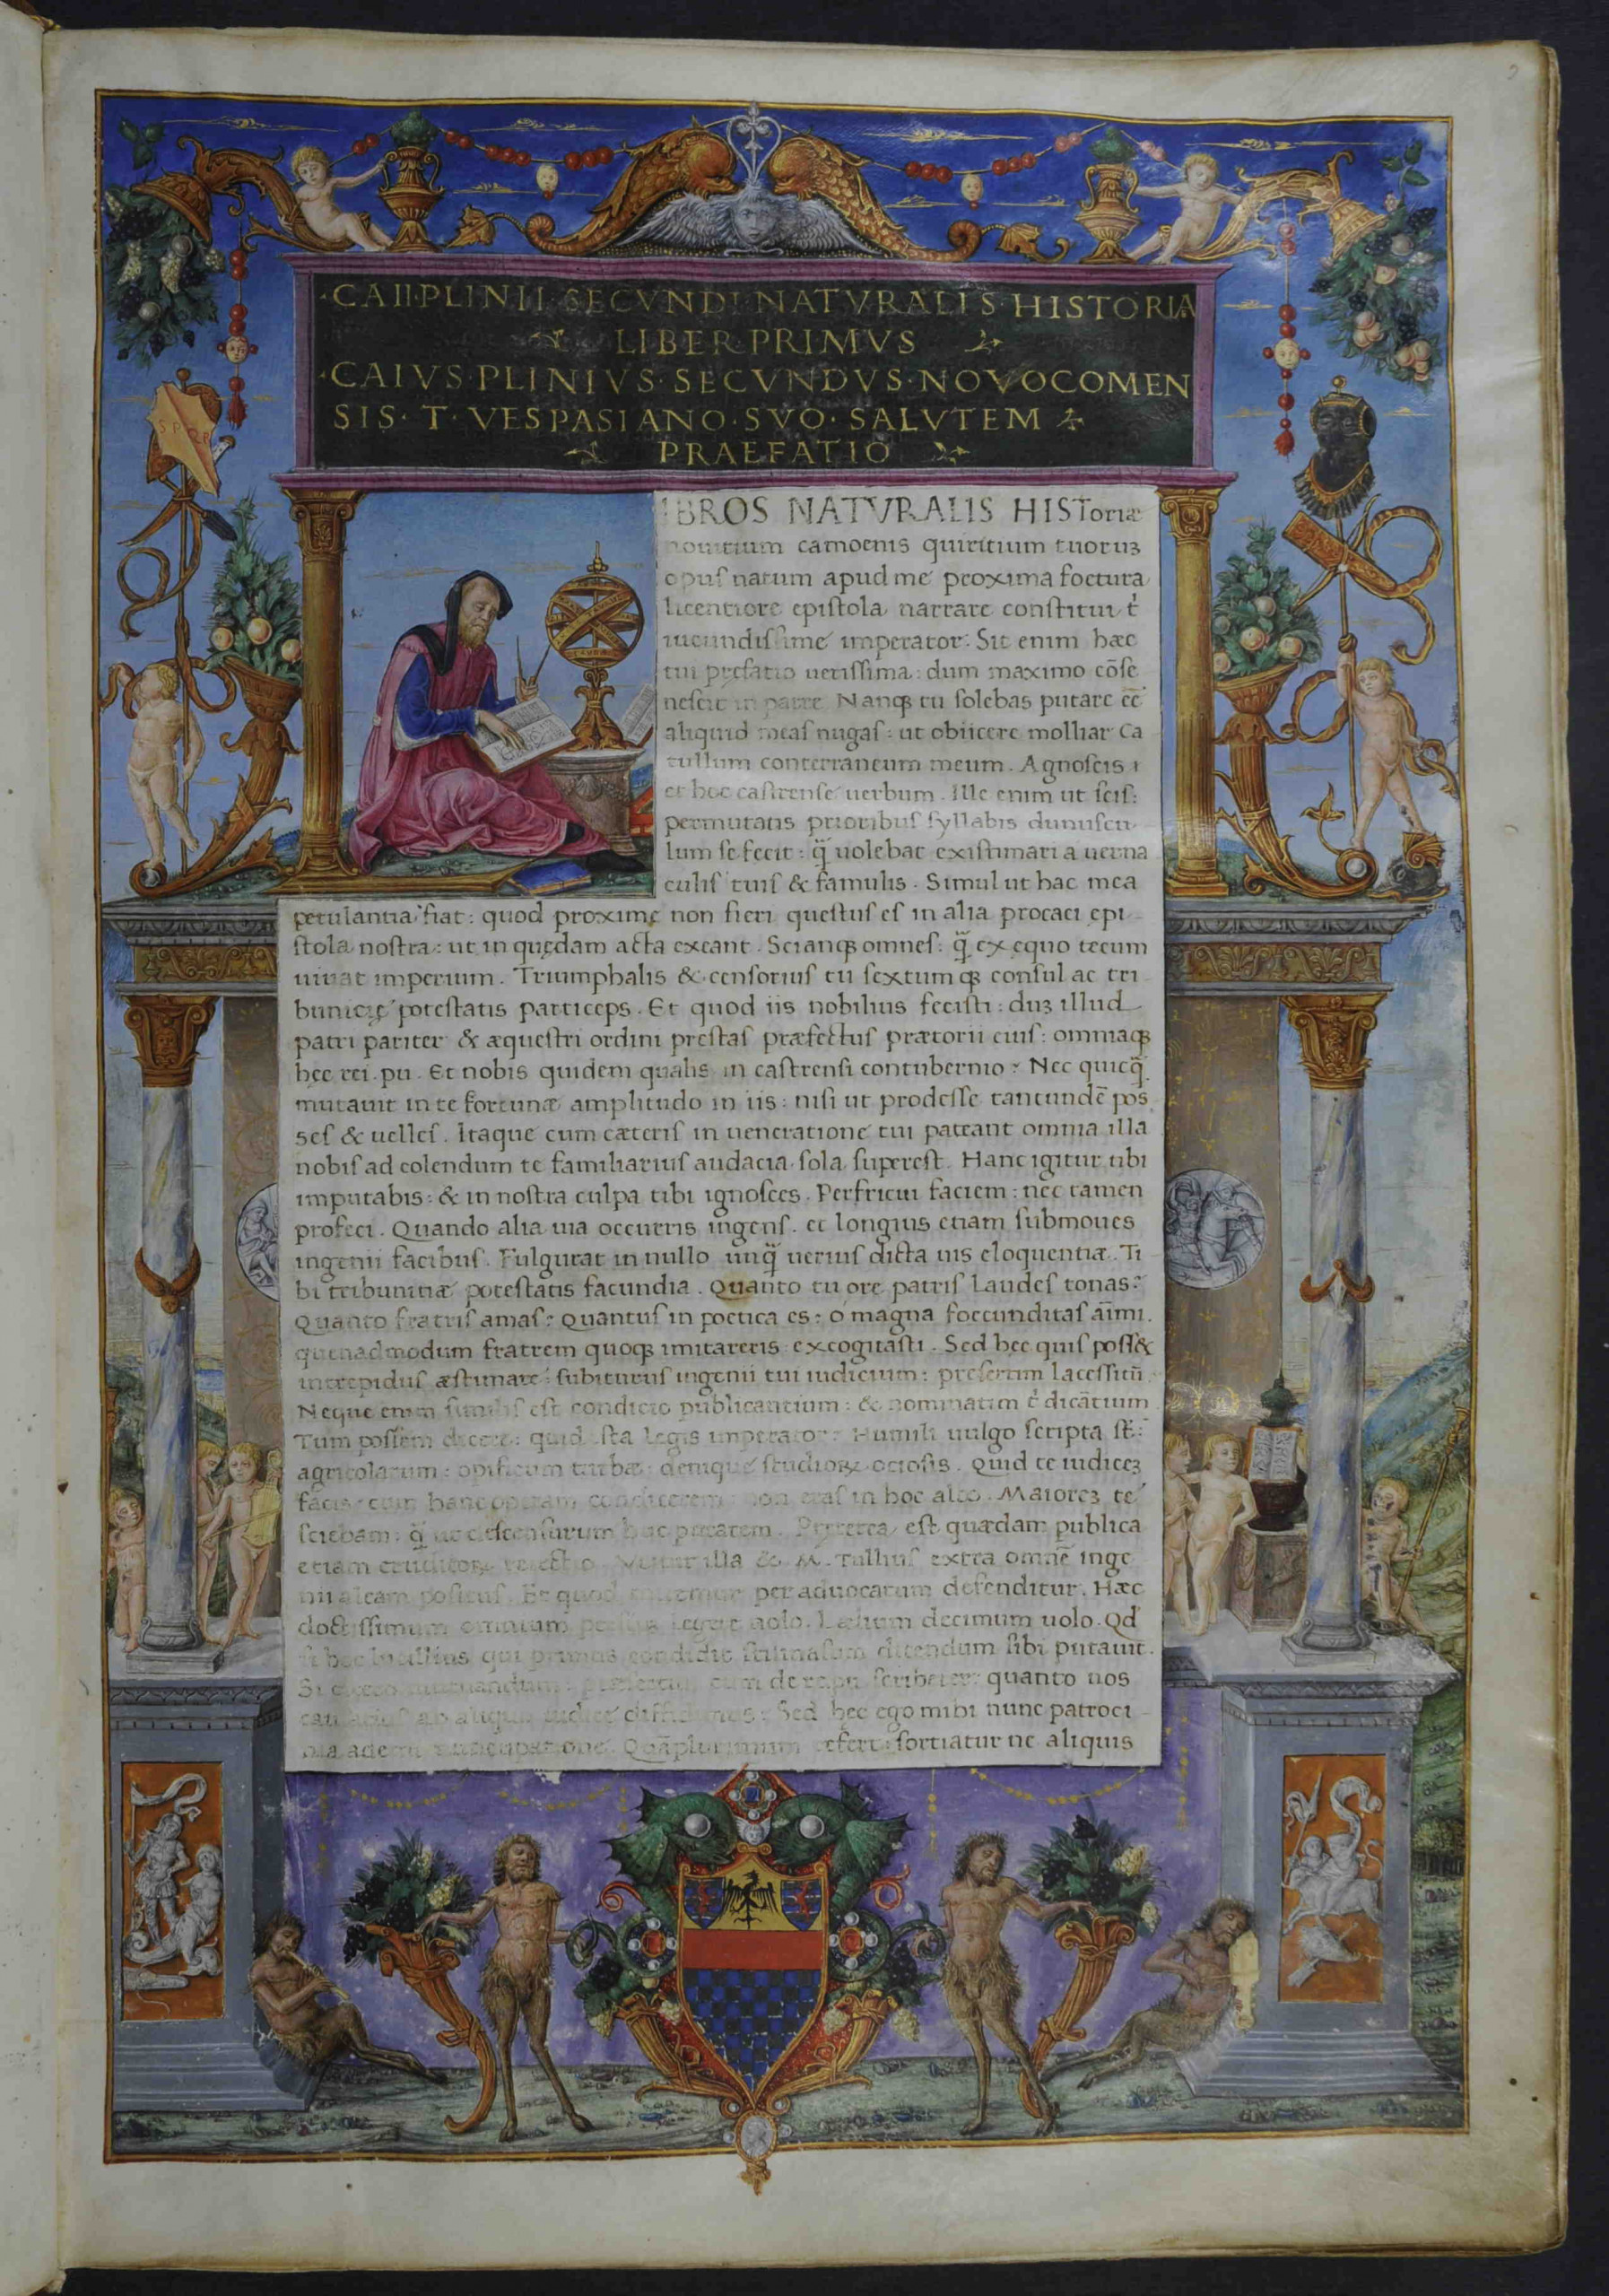 ·CAII·PLINII·SECVNDI·NATVRALIS·HISTORIA
LIBER·PRIMVS
·CAIVS·PLINIVS·SECVNDVS·NOVOCOMEN
SIS·T·VESPASIANO·SVO·SALVTEM
PRAEFATIO
SPQR
IBROS NATVRALIS HISToriæ
nouitium camoenis quiritium tuoruꝫ
opuſ natum apud me proxima foetura
licentiore epiſtola narrare conſtitui t̉
iucundiſſime imperator: Sit enim hæc
tui pręfatio ueriſſima: dum maximo cōſe
neſcit in patre. Nanqꝫ tu ſolebas putare eē
aliquid meaſ nugaſ: ut obiicere molliar Ca
tullum conterraneum meum. Agnoſcis
et hoc caſtrenſe uerbum. Ille enim ut ſciſ:
permutatis prioribuſ ſyllabis dunuſcu
lum ſe fecit: q̄ uolebat exiſtimari a uerna
culiſ tuiſ & famulis. Simul ut hac mea
petulantia fiat: quod proxime non fieri queſtuſ eſ in alia procaci epi
ſtola noſtra: ut in quędam acta exeant. Scianqꝫ omneſ: q̄ ex ęquo tecum
uiuat imperium. Triumphalis & cenſoriuſ tu ſextumqꝫ conſul ac tri
bunicię poteſtatis particeps. Et quod iis nobiliuſ feciſti: duꝫ illud
patri pariter & æqueſtri ordini preſtaſ præfectuſ prætorii eiuſ: omniaqꝫ
hec rei. pu. Et nobis quidem qualis in caſtrenſi contubernio: Nec quicq̄
mutauit in te fortunæ amplitudo in iis: niſi ut prodeſſe tantundē pos
ſeſ & uelleſ. Itaque cum cæteriſ in ueneratione tui pateant omnia illa
nobiſ ad colendum te familiariuſ audacia ſola ſupereſt. Hanc igitur tibi
imputabis: & in noſtra culpa tibi ignoſces. Perfricui faciem: nec tamen
profeci. Quando alia uia occurris ingenſ. et longius etiam ſubmoues
ingenii facibuſ. Fulgurat in nullo unq̄ ueriuſ dicta uis eloquentiæ. Ti
bi tribunitiæ poteſtatis facundia. Quanto tu ore patriſ laudeſ tonas:
Quanto fratriſ amaſ: Quantuſ in poetica es: o magna foecunditaſ aīmi.
quenadmodum fratrem quoqꝫ imitareris excogitaſti. Sed hec quiſ poſſ&
intrepiduſ æſtimare: ſubituruſ ingenii tui iudicium: preſertim laceſſitū
Neque enim ſimiliſ eſt condicio publicantium: & nominatim t̉ dicātium
Tum poſſem dicere: quid iſta legis imperator: Humili uulgo ſcripta ſt̄:
agricolarum: opificum turbæ: denique ſtudioꝝ ocioſis. Quid te iudiceꝫ
facis: cum hanc operam condicerem: non eraſ in hoc albo. Maioreꝫ te
ſciebam: q̄ ut deſcenſurum huc putarem. Preterea eſt quædam publica
etiam eruditoꝝ reiectio. Vtitur illa & M. Tulliuſ extra omnē inge
nii aleam poſituſ. Et quod miremur per aduocatum defenditur. Hæc
doctiſſimum omnium perſium legere nolo. Lælium decimum uolo. Qd̉
ſi hoc lucillius qui primus condidit ſtili naſum dicendum ſibi putauit.
Si cicero mutuandum: præſertim cum de re pu. ſcriberet: quanto nos
cauſatiuſ ab aliquo iudice diffidimus: Sed hec ego mihi nunc patroci
nia ademi nuncupatione. Quāplurimum refert: ſortiatur ne aliquis